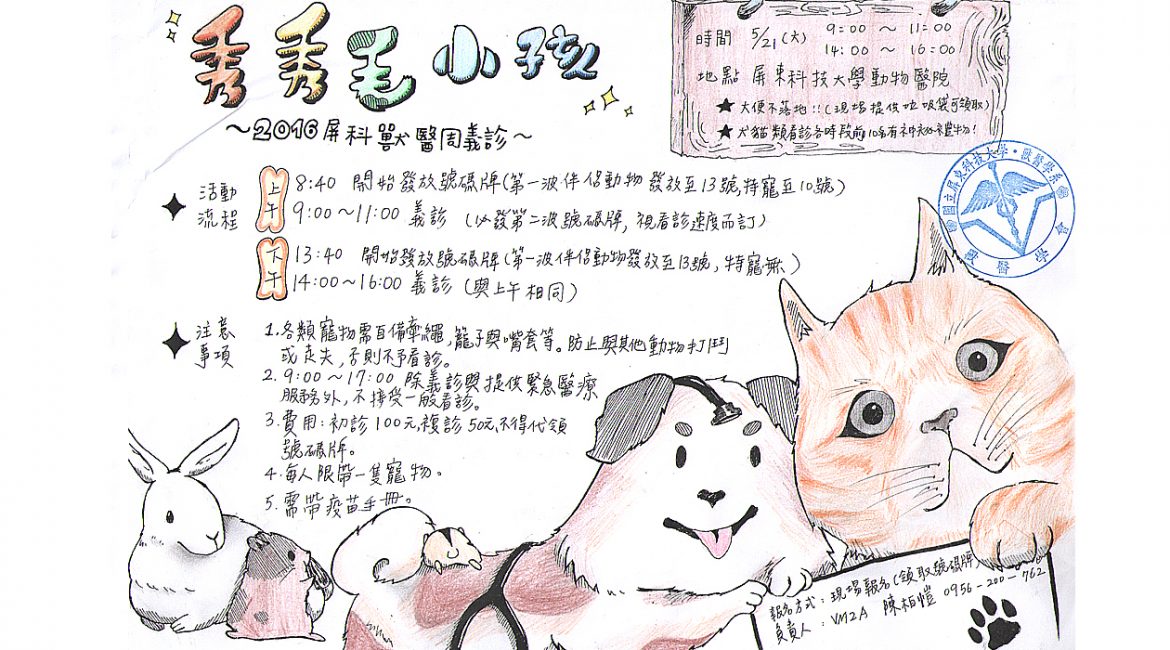 秀秀毛小孩
～2016屏科獸醫周義診～
時間 5/21(六) 9:00 ～ 11:00
14:00 ～ 16:00
地點 屏東科技大學動物醫院
★大便不落地!!(現場提供垃圾袋可領取)
★犬貓類看診各時段前10名有神秘禮物!
國立屏東科技大學・獸醫學系
獸醫學
活動流程
上午 8:40 開始發放號碼牌(第一波伴侶動物發放至13號,特寵至10號)
9:00～11:00 義診 (必發第二波號碼牌, 視看診速度而訂)
下午 13:40 開始發放號碼牌(第一波伴侶動物發放至13號, 特寵無)
14:00～16:00 義診 (與上午相同)
注意事項
1.各類寵物需自備牽繩,籠子與嘴套等。防止與其他動物打鬥
或走失,否則不予看診。
2. 9:00 ～ 17:00 除義診與提供緊急醫療
服務外,不接受一般看診。
3.費用:初診100元,複診50元,不得代領
號碼牌。
4.每人限帶一隻寵物。
5.需帶疫苗手冊。
報名方式:現場報名(領取號碼牌)
負責人:VM2A 陳柏愷 0956-200-762